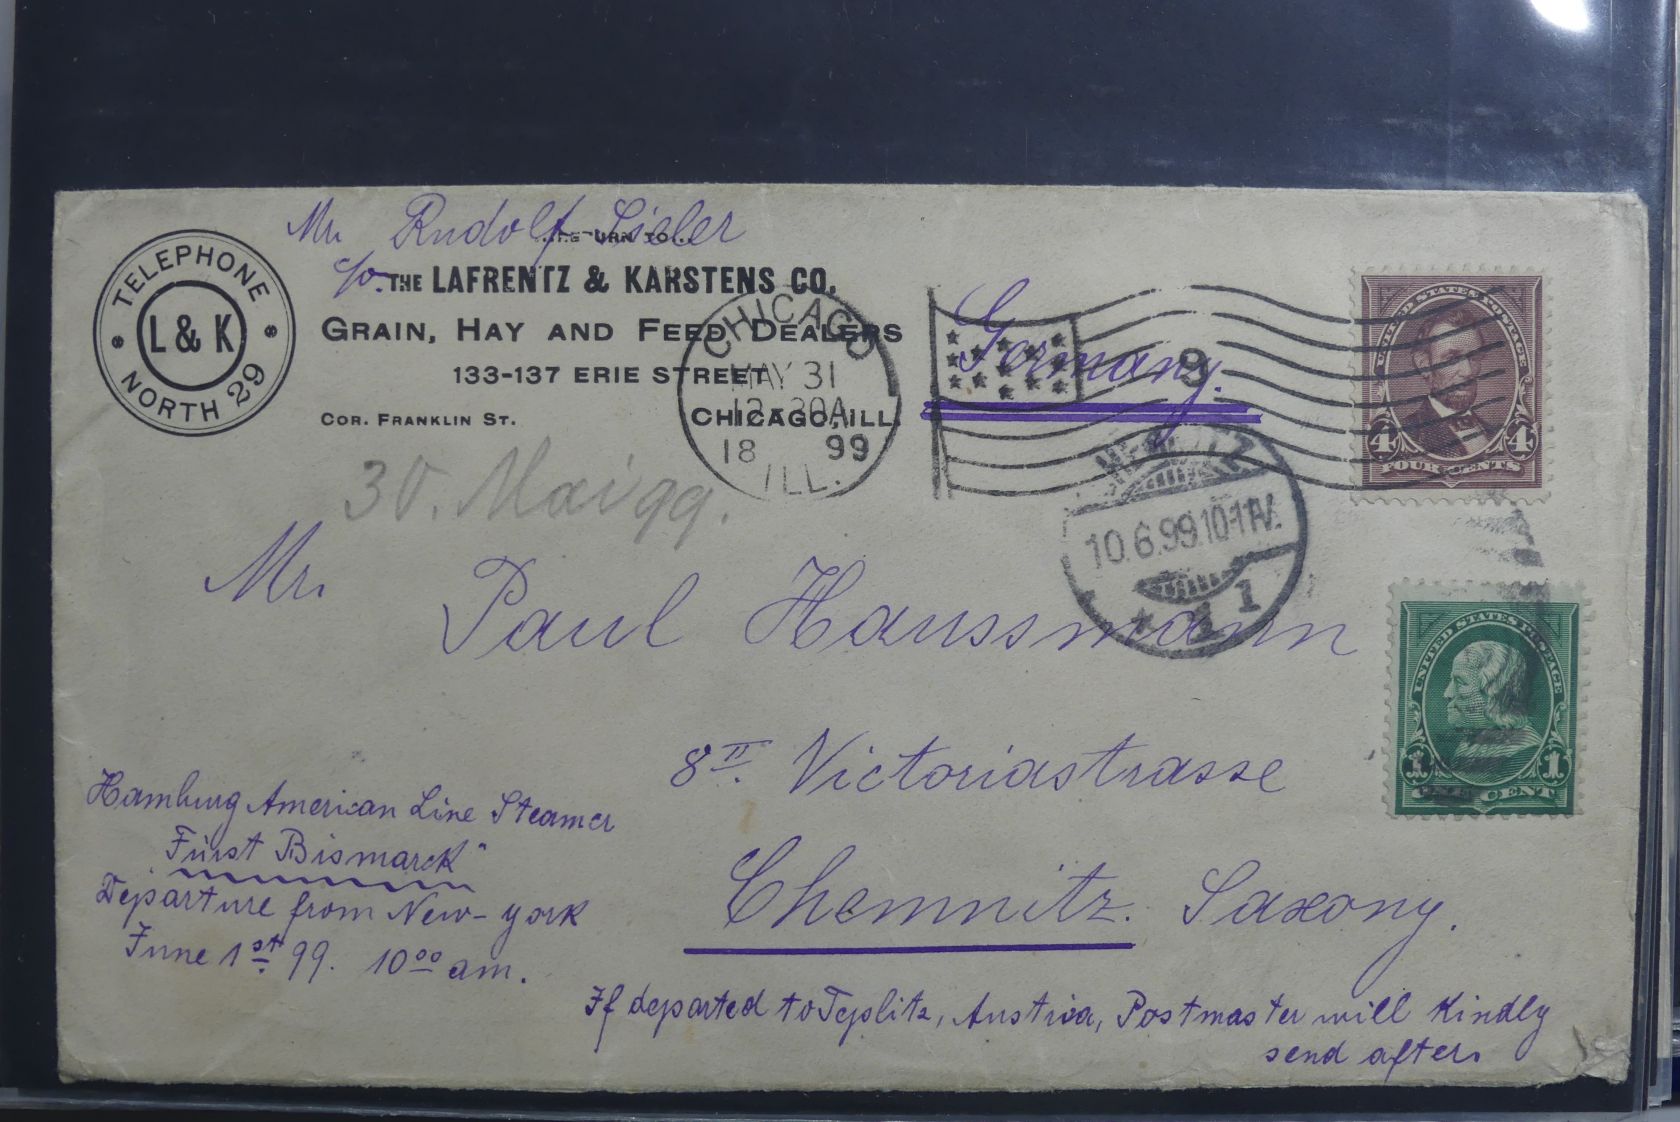 Mr. Rudolf
RETURN TO
c/o. THE LAFRENTZ & KARSTENS CO.
GRAIN, HAY AND FEED DEALERS
133-137 ERIE STREET
COR. FRANKLIN ST. CHICAGO, ILL.
TELEPHONE
L & K
NORTH 29
CHICAGO
MAY 31
12-30A
18 99
ILL.
3
Germany.
UNITED STATES POSTAGE
4 4
FOUR CENTS
30. Mai 99.
CHEMNITZ
10.6.99.10-11V.
* 1
Mr. Paul Haussmann
UNITED STATES POSTAGE
1 1
ONE CENT
8 II. Victoriastrasse
Chemnitz. Saxony.
Hamburg American Line Steamer
Fürst Bismarck"
Departure from New-York
June 1st 99. 10 00 am.
If departed to Teplitz, Austria, Postmaster will kindly
send after.